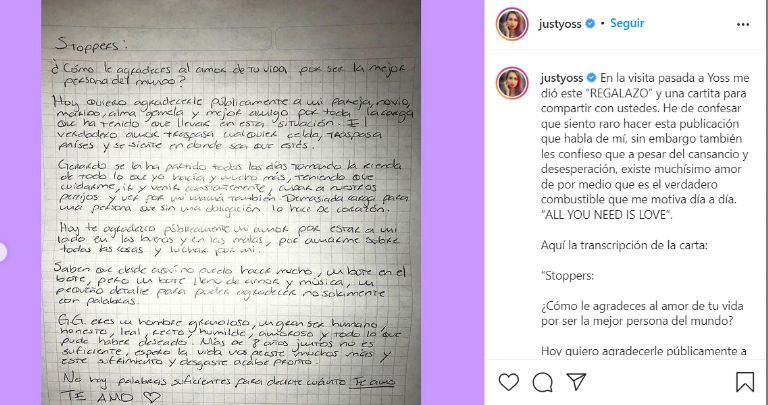 Stoppers:
¿Cómo le agradeces al amor de tu vida por ser la mejor
persona del mundo?
Hoy quiero agradecerle públicamente a mi pareja, novio,
marido, alma gemela y mejor amigo por toda la carga
que ha tenido que llevar en esta situación. El
verdadero amor traspasa cualquier celda, traspasa
países y se siente en donde sea que estés.
Gerardo se la ha partido todos los días tomando la rienda
de todo lo que yo hacía y mucho más, teniendo que
cuidarme, ir y venir constantemente, cuidar a nuestros
perrijos y ver por mi mamá también. Demasiada carga para
una persona que sin una obligación lo hace de corazón.
Hoy te agradezco públicamente mi amor por estar a mi
lado en las buenas y en las malas, por amarme sobre
todas las cosas y luchar por mi.
Saben que desde aquí no puedo hacer mucho, un bote en el
bote, pero un bote lleno de amor y música, un
pequeño detalle para poder agradecer no solamente
con palabras.
G.G. eres un hombre grandioso, un gran ser humano,
honesto, leal, recto y humilde, amoroso y todo lo que
pude haber deseado. Más de 8 años juntos no es
suficiente, espero la vida nos preste muchos más y
este sufrimiento y desgaste acabe pronto.
No hay palabras suficientes para decirte cuánto Te amo
TE AMO ♡
justyoss • Seguir
justyoss En la visita pasada a Yoss me
dió este "REGALAZO" y una cartita para
compartir con ustedes. He de confesar
que siento raro hacer esta publicación
que habla de mí, sin embargo también
les confieso que a pesar del cansancio y
desesperación, existe muchísimo amor
de por medio que es el verdadero
combustible que me motiva día a día.
"ALL YOU NEED IS LOVE".
Aquí la transcripción de la carta:
"Stoppers:
¿Cómo le agradeces al amor de tu vida
por ser la mejor persona del mundo?
Hoy quiero agradecerle públicamente a